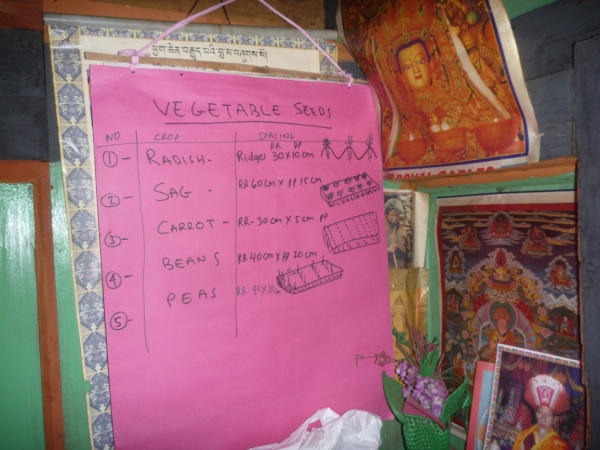 ཕྱག་ཆེན་བརྒྱུད་པའི་བླ་མ་བཞུགས་སོ།
VEGETABLE SEEDS
NO CROP SPACING
RR PP
① - RADISH - Ridges 30 X 10 cm
② - SAG - RR 60 cm X PP 15 cm
③ - CARROT - RR - 30 cm X 5 cm PP
④ - BEANS RR 40 cm X PP 20 cm
⑤ - PEAS RR - 45 X 10 cm